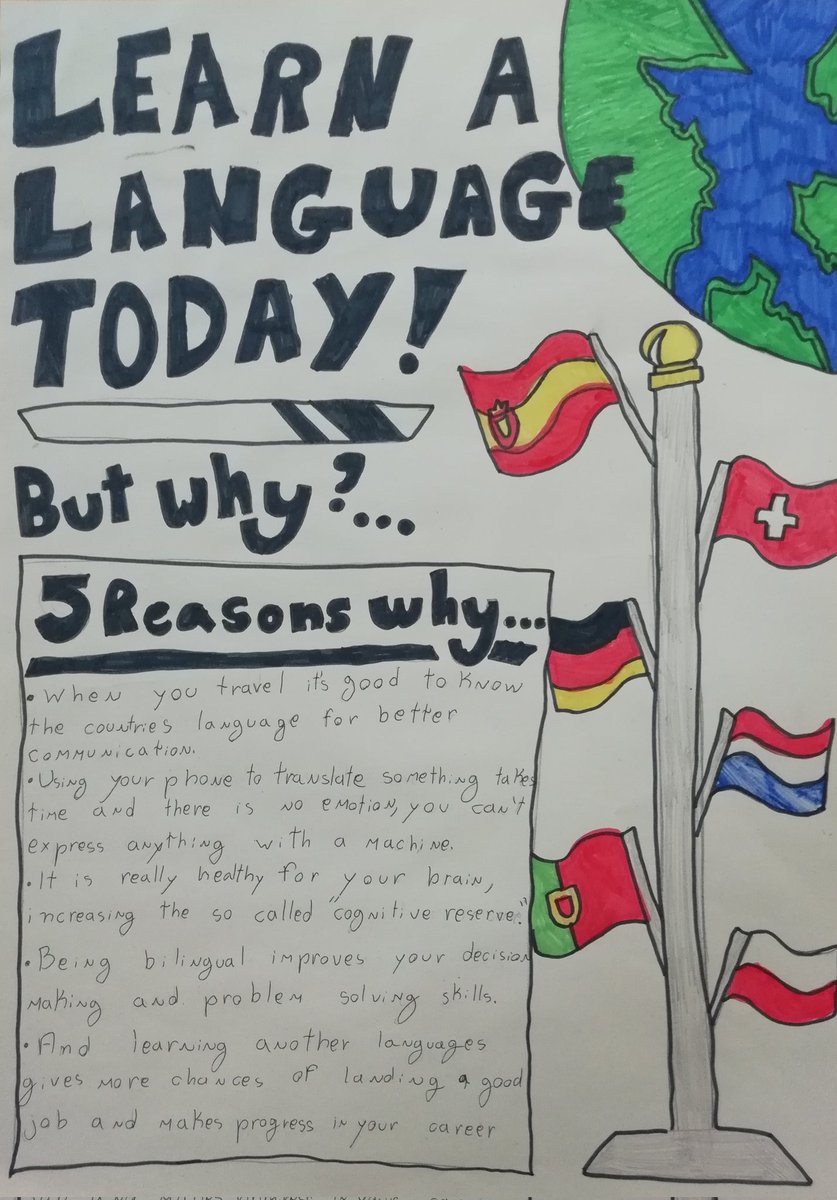 LEARN A
LANGUAGE
TODAY!
But why?...
5 Reasons why...
• When you travel it's good to know
the countries language for better
communication.
• Using your phone to translate something takes
time and there is no emotion, you can't
express anything with a machine.
• It is really healthy for your brain,
increasing the so called "cognitive reserve."
• Being bilingual improves your decision
making and problem solving skills.
• And learning another languages
gives more chances of landing a good
job and makes progress in your career